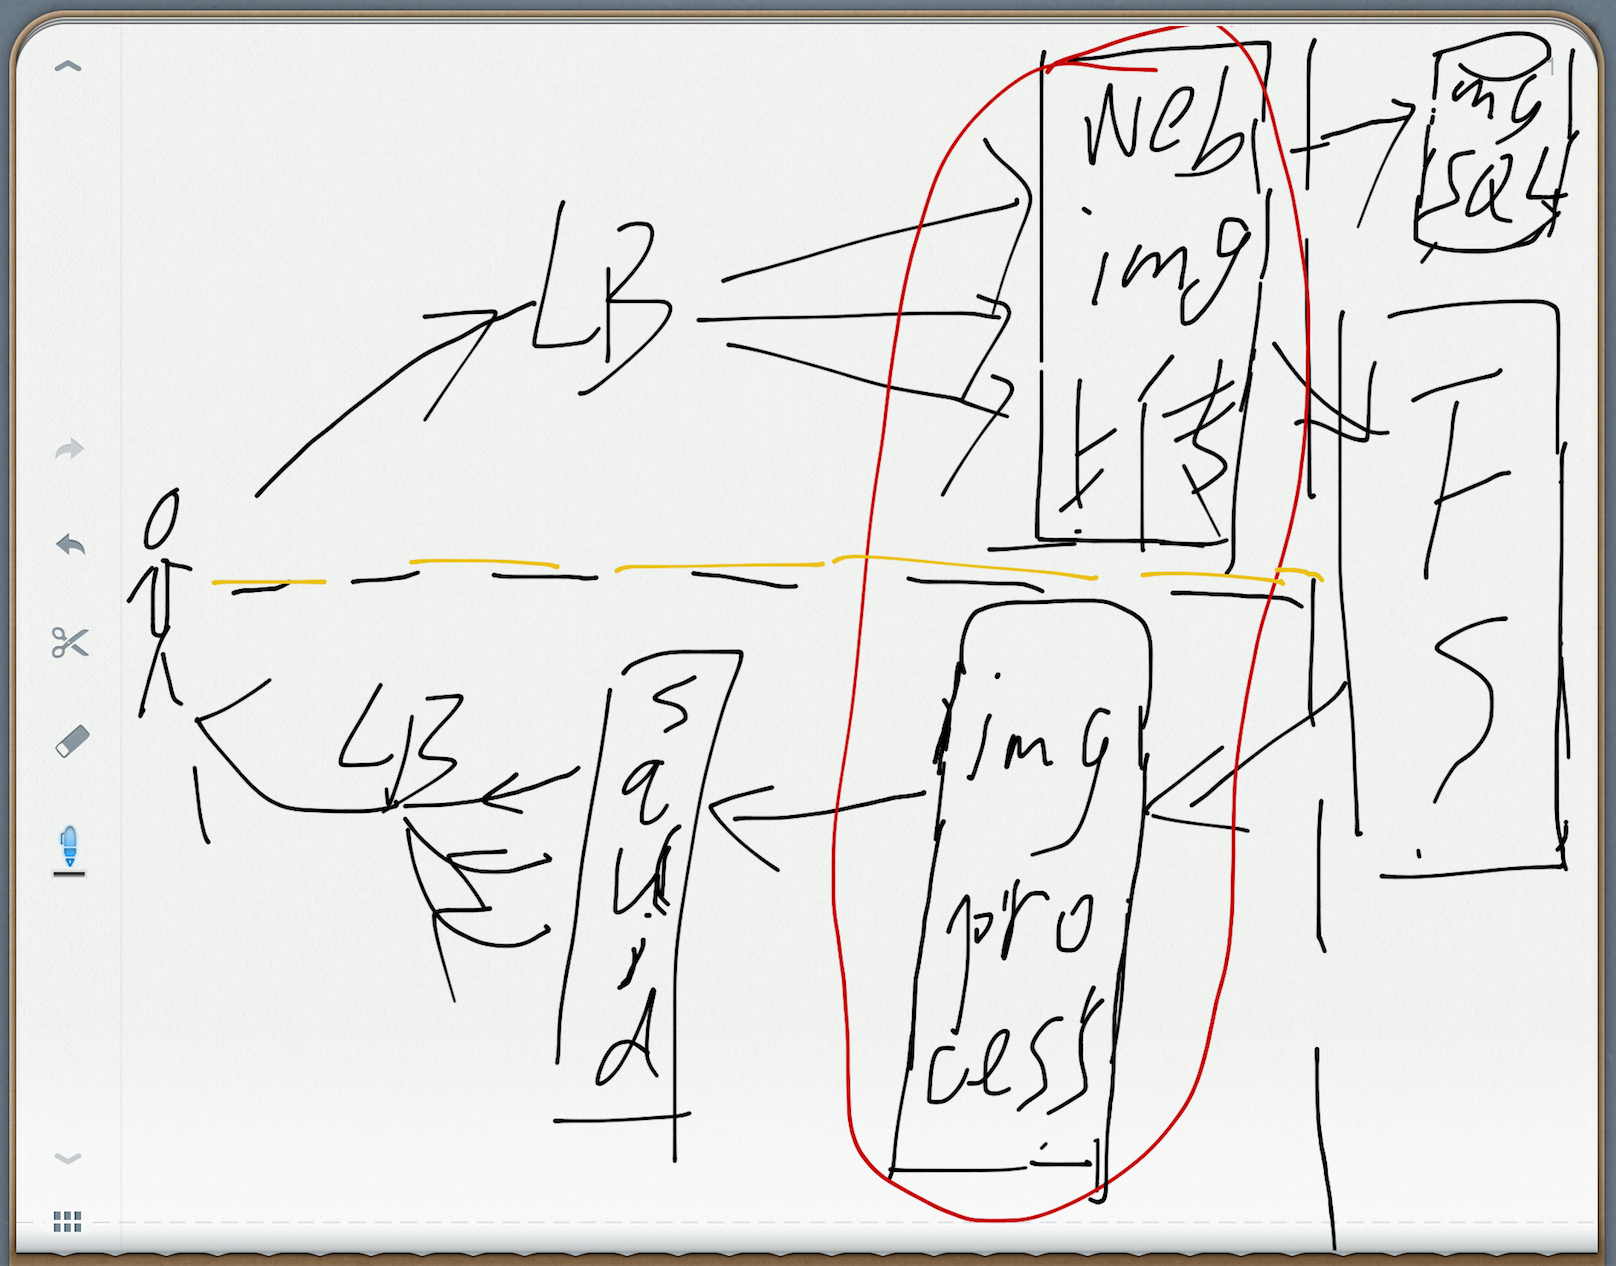 LB
web
img
上传
my
SQL
FS
LB
squid
img
pro
cess